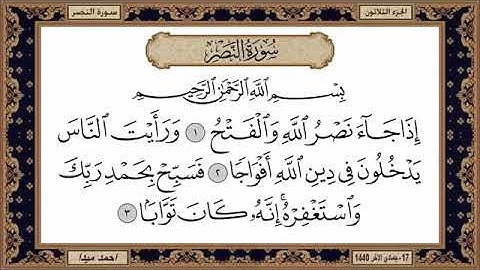 سورة النصر
الجزء الثلاثون
سُورَةُ النَّصْرِ
بِسْمِ اللَّهِ الرَّحْمَٰنِ الرَّحِيمِ
إِذَا جَآءَ نَصْرُ اللَّهِ وَالْفَتْحُ ١ وَرَأَيْتَ النَّاسَ
يَدْخُلُونَ فِي دِينِ اللَّهِ أَفْوَاجًا ٢ فَسَبِّحْ بِحَمْدِ رَبِّكَ
وَاسْتَغْفِرْهُ ۚ إِنَّهُ كَانَ تَوَّابًا ٣
أحمد ميدا
17- جمادي الآخر 1440